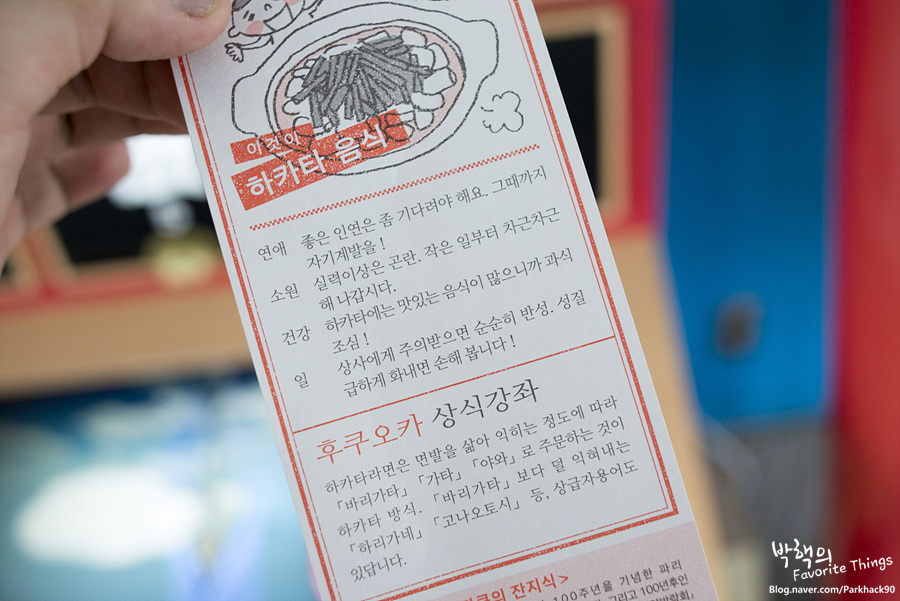 이것이
하카타 음식
연애 좋은 인연은 좀 기다려야 해요. 그때까지
자기계발을 !
소원 실력이상은 곤란. 작은 일부터 차근차근
해 나갑시다.
건강 하카타에는 맛있는 음식이 많으니까 과식
조심 !
일 상사에게 주의받으면 순순히 반성. 성질
급하게 화내면 손해 봅니다 !
후쿠오카 상식강좌
하카타라면은 면발을 삶아 익히는 정도에 따라
「바리가타」 「가타」 「야와」로 주문하는 것이
하카타 방식. 「바리가타」보다 덜 익혀내는
「하리가네」 「고나오토시」 등, 상급자용어도
있답니다.
잔지식>
100주년을 기념한 파리
그리고 100년후인
박핵의
Favorite Things
Blog.naver.com/Parkhack90